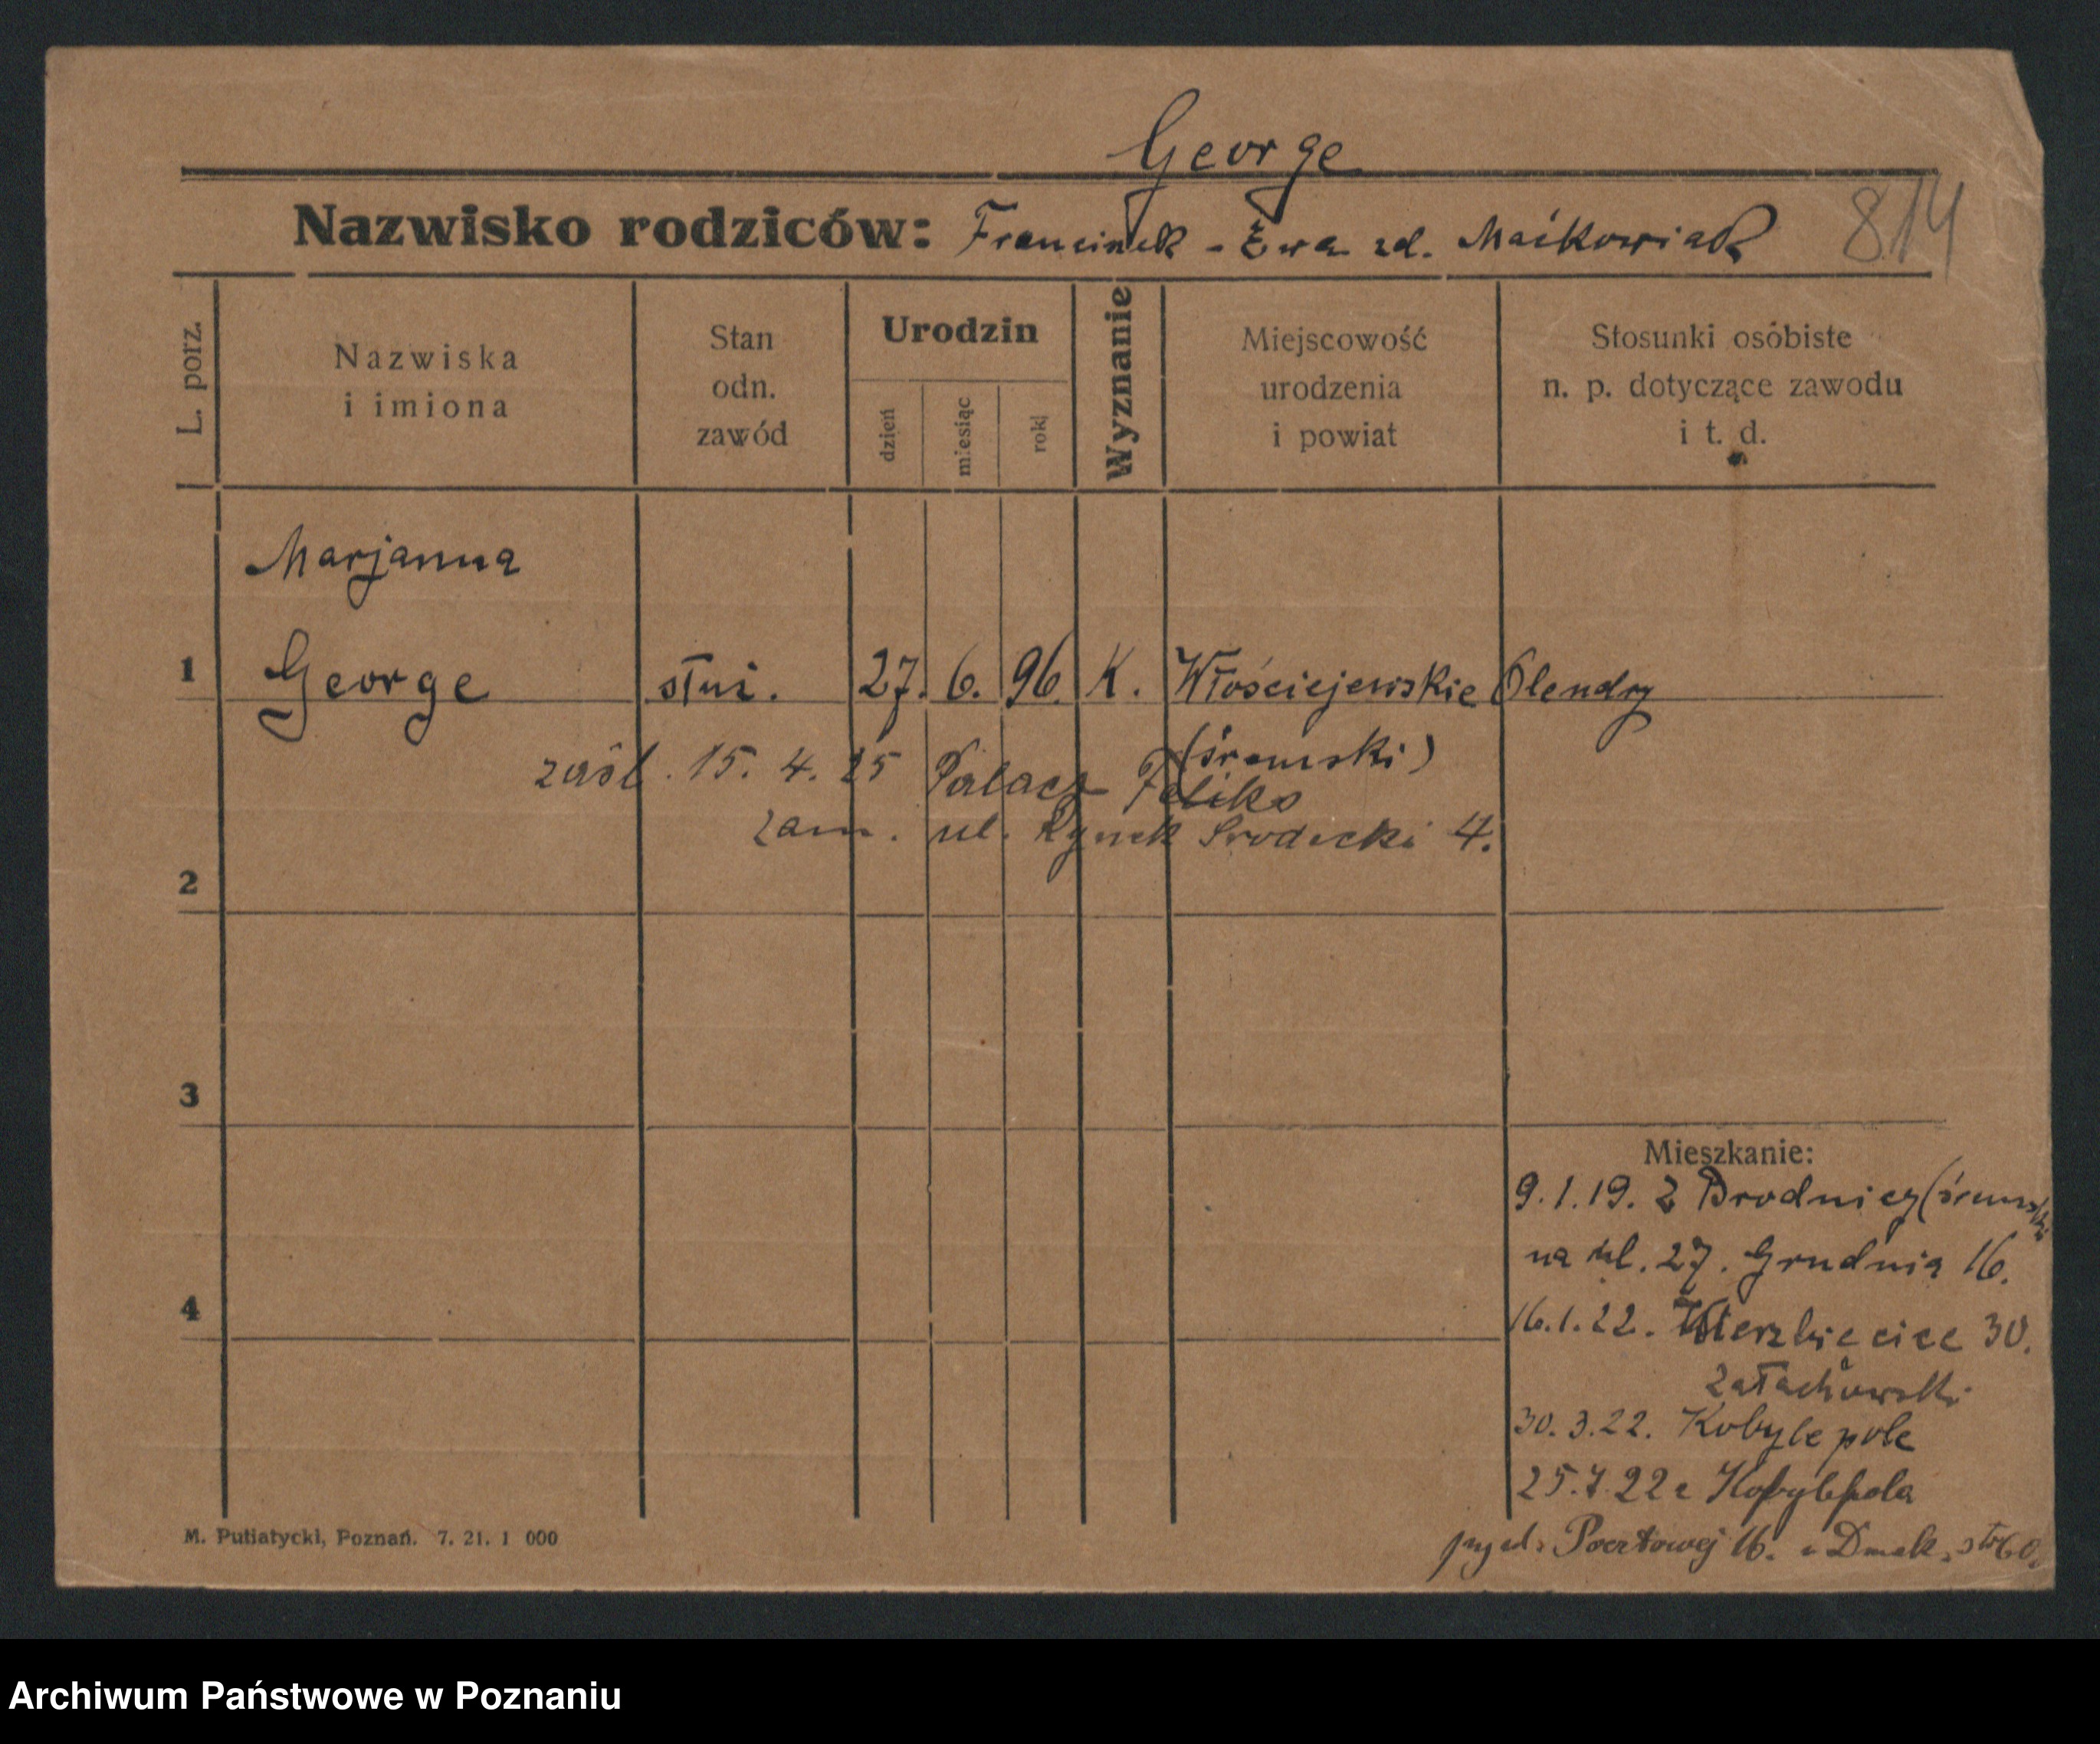 George
Nazwisko rodziców: Franciszek - Ewa zd. Maćkowiak 814
L. porz.
Nazwiska
i imiona
Stan
odn.
zawód
Urodzin
dzień
miesiąc
rok
Wyznanie
Miejscowość
urodzenia
i powiat
Stosunki osóbiste
n. p. dotyczące zawodu
i t. d.
Marjanna
1 George służ. 27. 6. 96. K. Włościejewskie Olendry
(śremski)
zaśl. 15. 4. 25 Palacz Feliks
zam. ul. Rynek Śródecki 4.
2
3
4
Mieszkanie:
9.1.19. z Brodnicy (śremski
na ul. 27. Grudnia 16.
16.1.22. Wierzbięcice 30.
Załachowski
30.3.22. Kobylepole
25.7.22 z Kobylepola
Pocztowej 16. z
M. Putiatycki, Poznań. 7. 21. 1 000
Archiwum Państwowe w Poznaniu